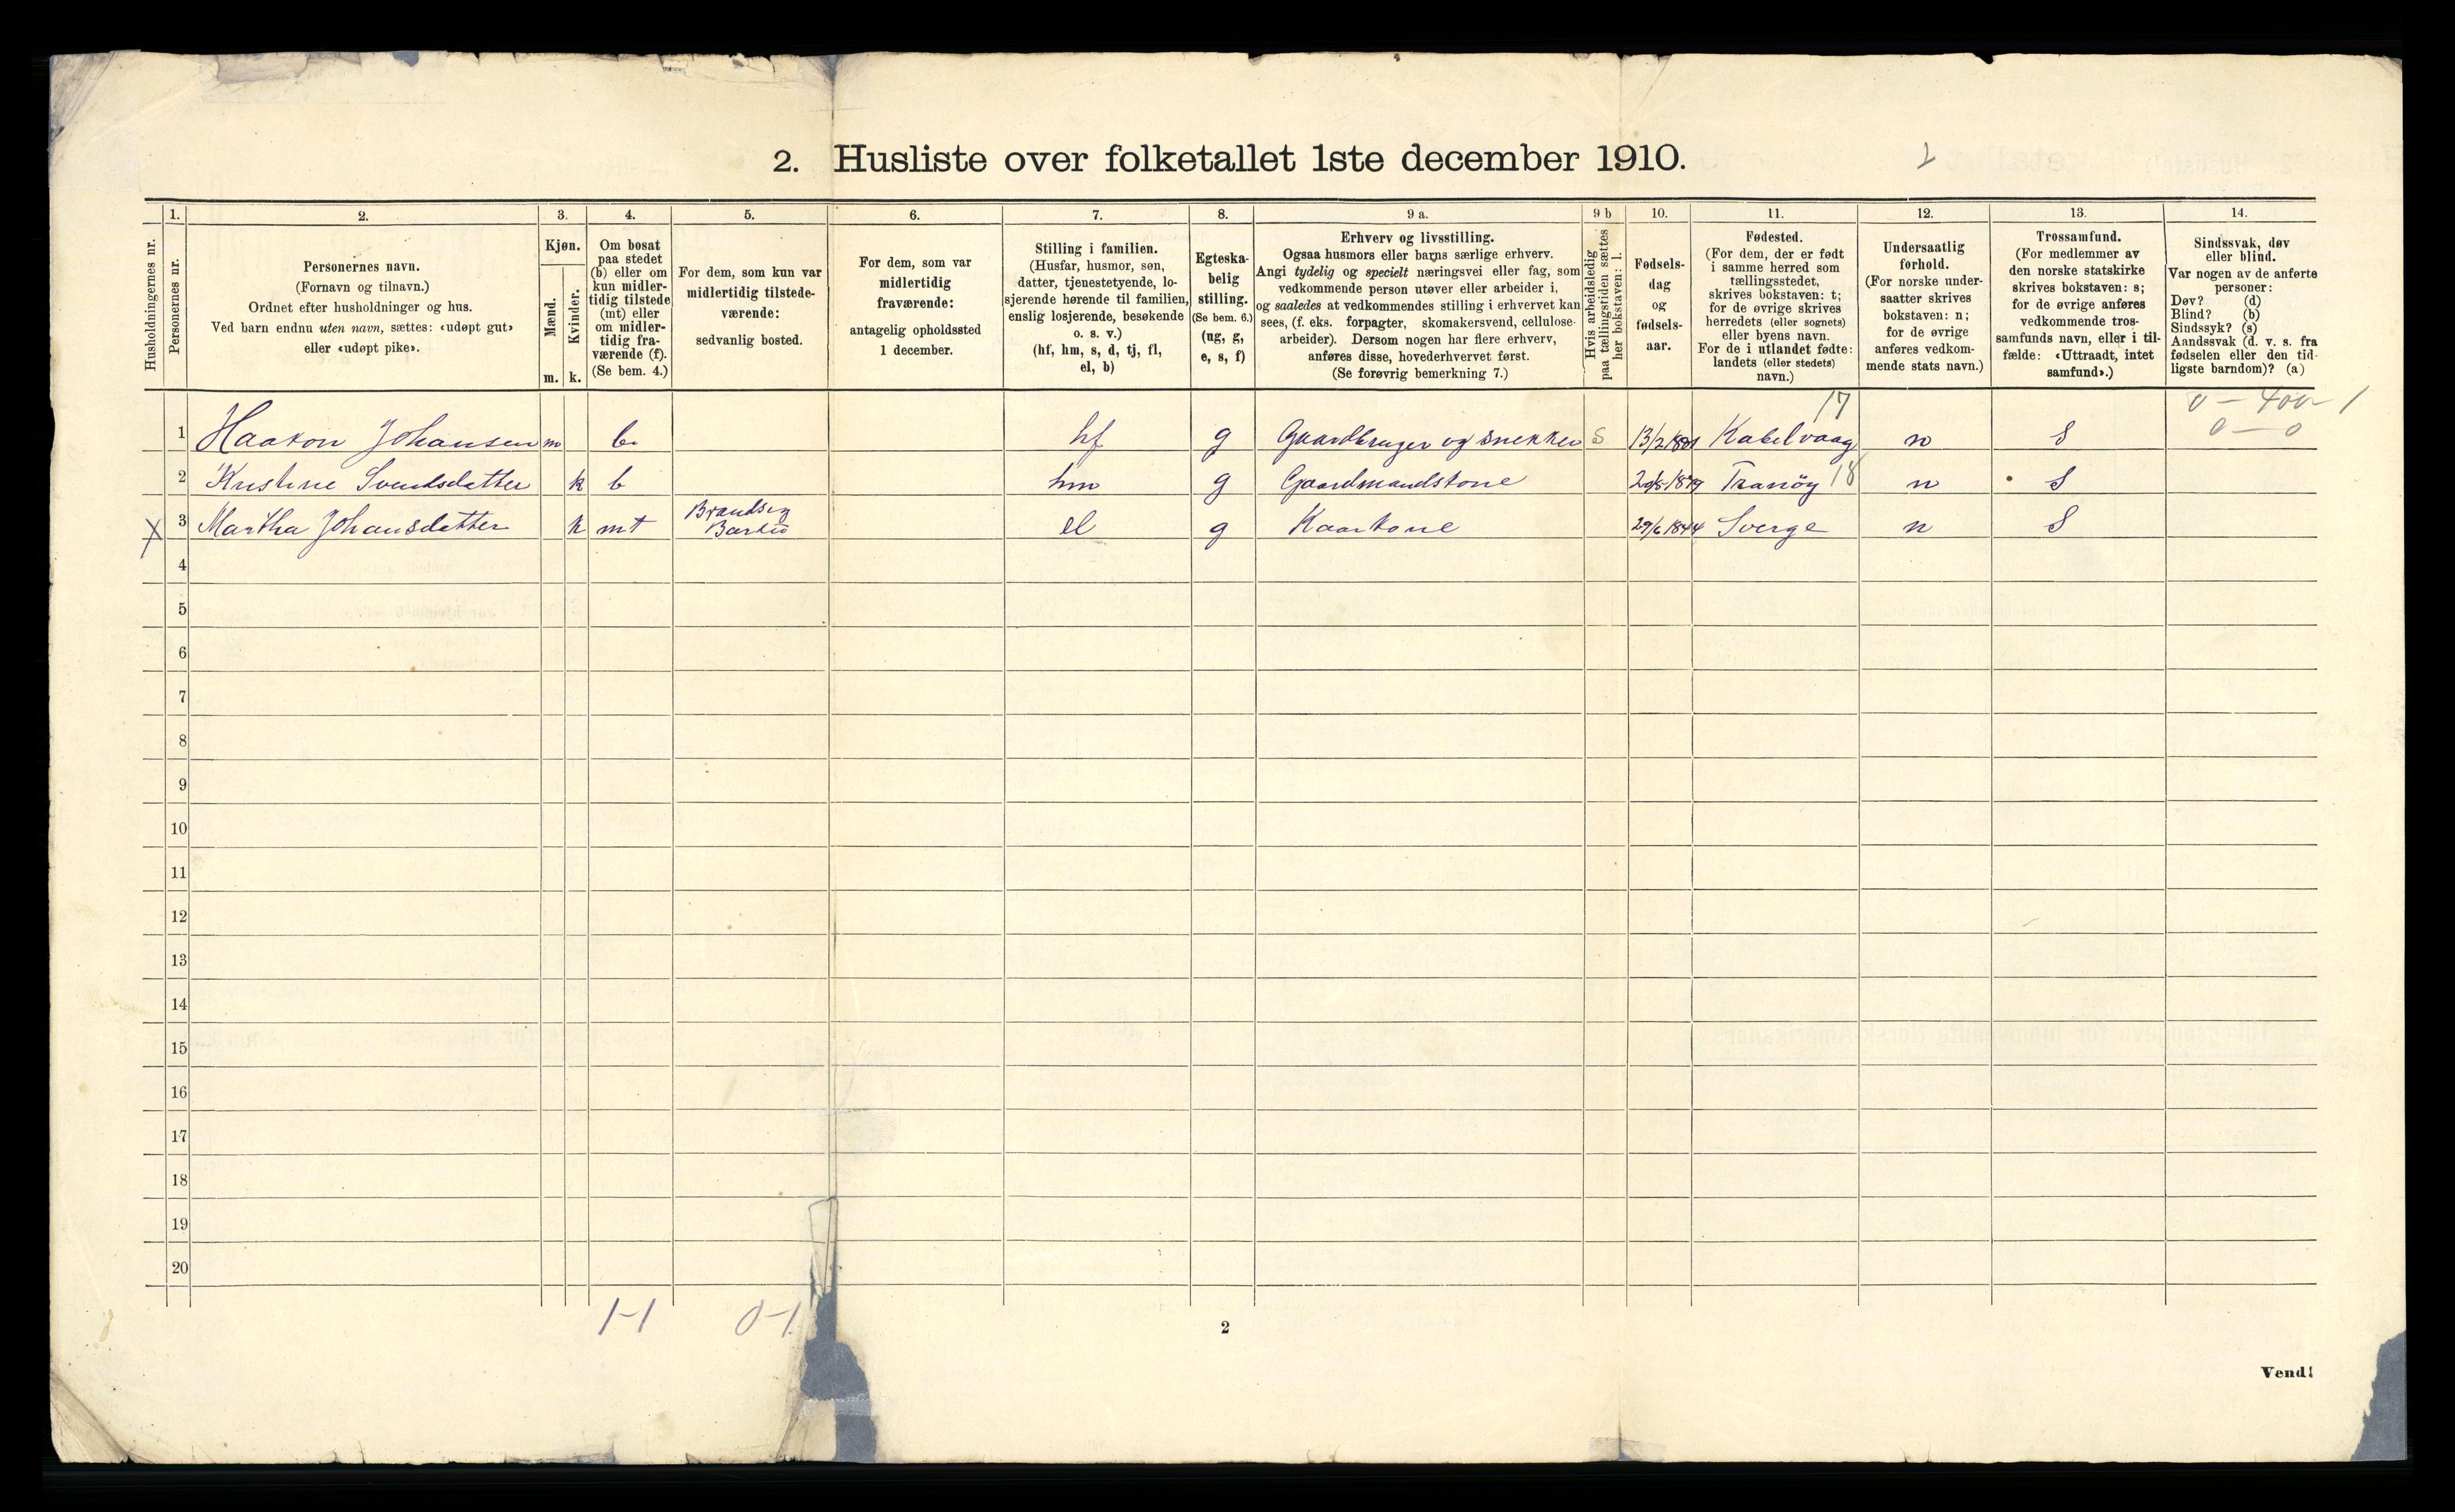 2. Husliste over folketallet 1ste december 1910.
2
Husholdningernes nr.
1.
Personernes nr.
2.
Personernes navn.
(Fornavn og tilnavn.)
Ordnet efter husholdninger og hus.
Ved barn endnu uten navn, sættes: «udøpt gut»
eller «udøpt pike».
3.
Kjøn.
Mænd.
Kvinder.
m. k.
4.
Om bosat
paa stedet
(b) eller om
kun midler-
tidig tilstede
(mt) eller
om midler-
tidig fra-
værende (f).
(Se bem. 4.)
5.
For dem, som kun var
midlertidig tilstede-
værende:
sedvanlig bosted.
6.
For dem, som var
midlertidig
fraværende:
antagelig opholdssted
1 december.
7.
Stilling i familien.
(Husfar, husmor, søn,
datter, tjenestetyende, lo-
sjerende hørende til familien,
enslig losjerende, besøkende
o. s. v.)
(hf, hm, s, d, tj, fl,
el, b)
8.
Egteska-
belig
stilling.
(Se bem. 6.)
(ug, g,
e, s, f)
9 a.
Erhverv og livsstilling.
Ogsaa husmors eller barns særlige erhverv.
Angi tydelig og specielt næringsvei eller fag, som
vedkommende person utøver eller arbeider i,
og saaledes at vedkommendes stilling i erhvervet kan
sees, (f. eks. forpagter, skomakersvend, cellulose-
arbeider). Dersom nogen har flere erhverv,
anføres disse, hovederhvervet først.
(Se forøvrig bemerkning 7.)
9 b
Hvis arbeidsledig
paa tællingstiden sættes
her bokstaven: l.
10.
Fødsels-
dag
og
fødsels-
aar.
11.
Fødested.
(For dem, der er født
i samme herred som
tællingsstedet,
skrives bokstaven: t;
for de øvrige skrives
herredets (eller sognets)
eller byens navn.
For de i utlandet fødte:
landets (eller stedets)
navn.)
12.
Undersaatlig
forhold.
(For norske under-
saatter skrives
bokstaven: n;
for de øvrige
anføres vedkom-
mende stats navn.)
13.
Trossamfund.
(For medlemmer av
den norske statskirke
skrives bokstaven: s;
for de øvrige anføres
vedkommende tros-
samfunds navn, eller i til-
fælde: «Uttraadt, intet
samfund».)
14.
Sindssvak, døv
eller blind.
Var nogen av de anførte
personer:
Døv? (d)
Blind? (b)
Sindssyk? (s)
Aandssvak (d. v. s. fra
fødselen eller den tid-
ligste barndom)? (a)
17
0 – 400 – 1
0 – 0
1 Haakon Johansen m b hf g Gaardbruger og snekker S 13/2 Kabelvaag n S
2 Kristine Svendsdatter k b hm g Gaardmandskone 1879 Tranöy 18 n S
Brandseg
X 3 Martha Johansdatter k mt el g Kaarkone 29/6 1844 Sverge n S
4
5
6
7
8
9
10
11
12
13
14
15
16
17
18
19
20
1-1 0-1
2
Vend!